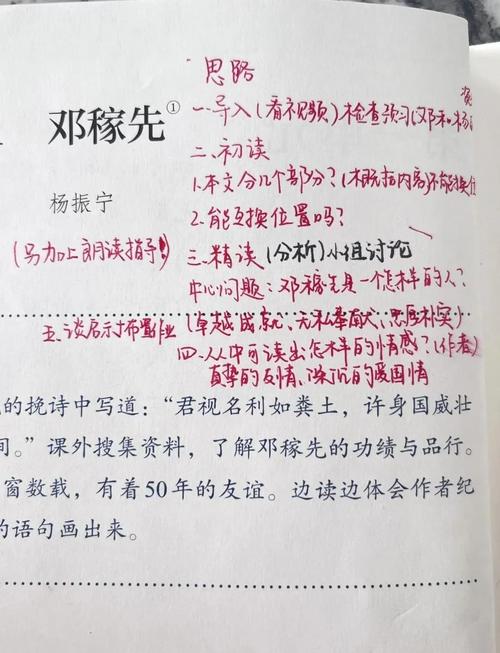 思路
一.导入(看视频)检查预习(邓和杨
资
邓稼先①
二、初读
1.本文分几个部分?(概括内容)不能换位
杨振宁
2.能互换位置吗?
(另加上朗读指导!)
三、精读(分析)小组讨论
中心问题:邓稼先是一个怎样的人?
五、谈启示 布置作业
(卓越成就、无私奉献、忠厚朴实)
四、从中可读出怎样的情感?(作者)
真挚的友情、深沉的爱国情
的挽诗中写道:“君视名利如粪土,许身国威壮
间。”课外搜集资料,了解邓稼先的功绩与品行。
窗数载,有着50年的友谊。边读边体会作者纪
的语句画出来。